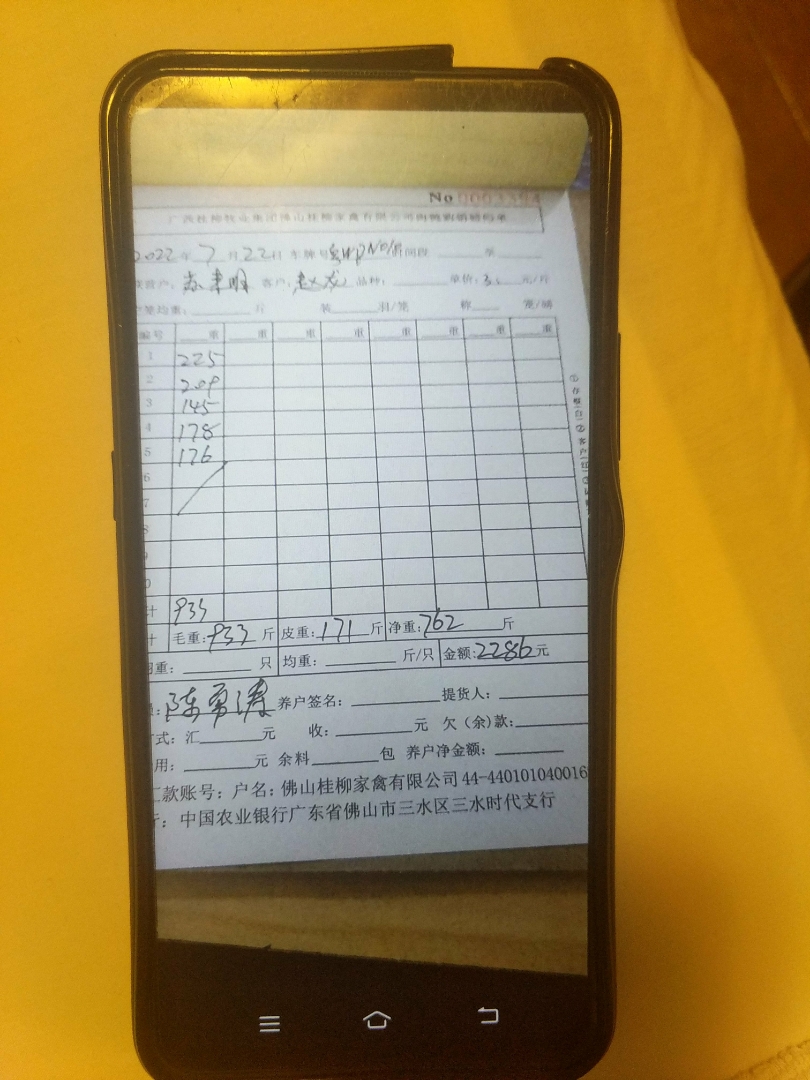 No 0003394
广西桂柳牧业集团佛山桂柳家禽有限公司肉鸭购销磅码单
2022年 7月22日 车牌号 时间段 至
客户: 赵龙 品种: 单价:3. 元/斤
笼均重: 斤 装 羽/笼 称 笼/磅
编号 重 重 重 重 重 重 重 重
1 225
2 209
3 145
4 178
5 176
6
7
8
9
0
计 933
计 毛重:933 斤 皮重:171 斤 净重:762 斤
重: 只 均重: 斤/只 金额:2286元
陈勇涛 养户签名: 提货人:
式: 汇 元 收: 元 欠(余)款:
用: 元 余料 包 养户净金额:
汇款账号: 户名: 佛山桂柳家禽有限公司 44-440101040016
行: 中国农业银行广东省佛山市三水区三水时代支行